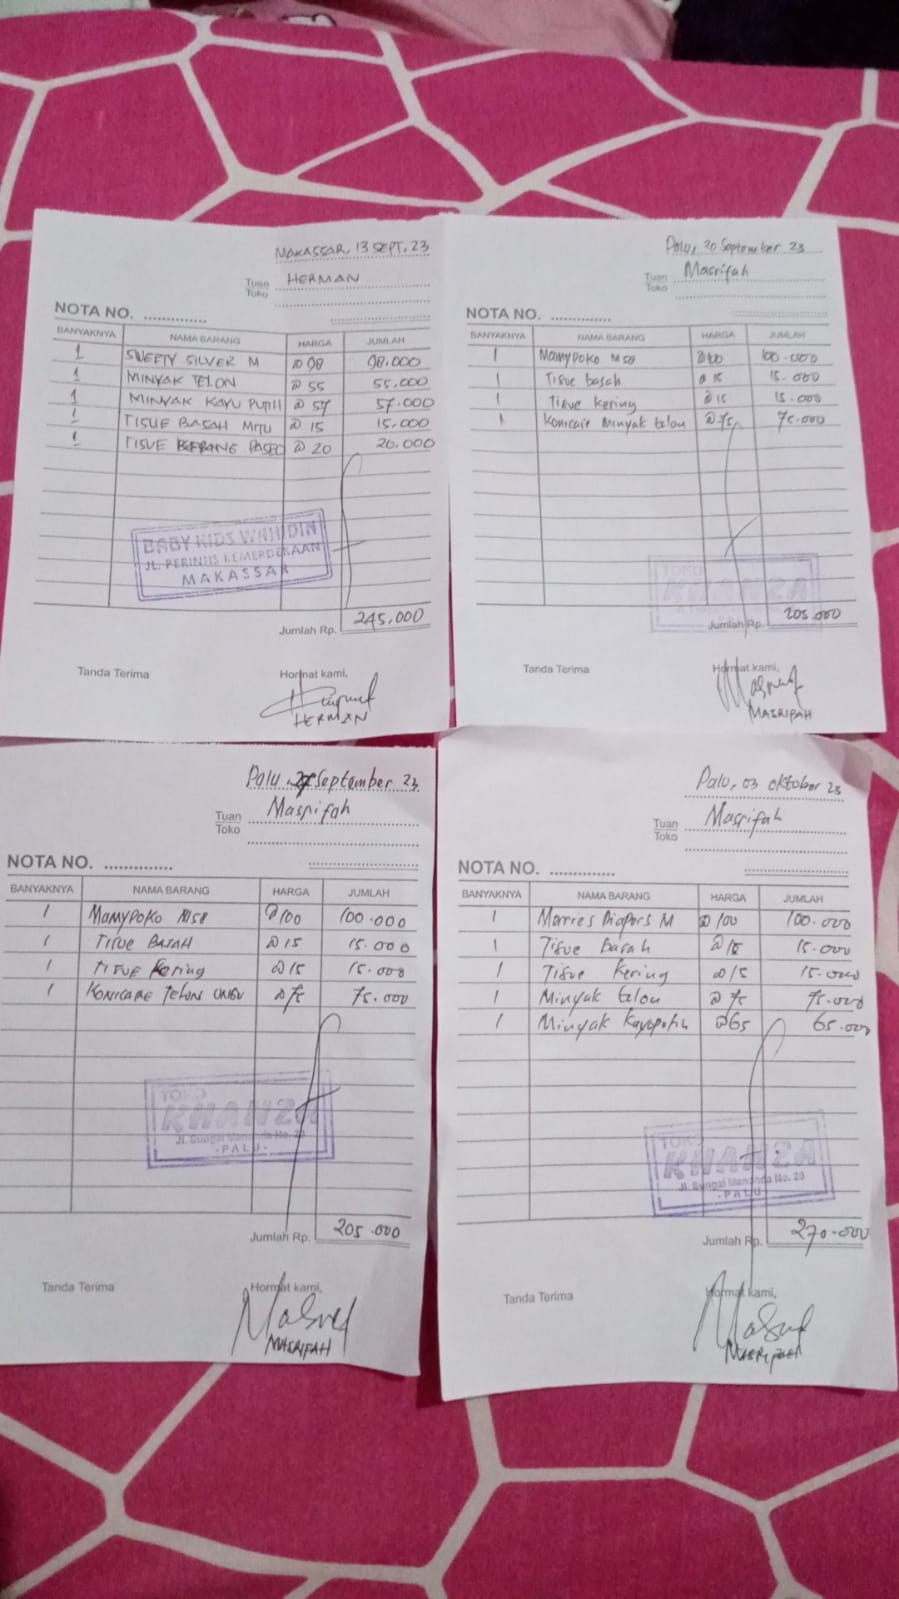 MAKASSAR, 13 SEPT, 23
Tuan HERMAN
Toko
NOTA NO. ..............
BANYAKNYA NAMA BARANG HARGA JUMLAH
1 SWEPTY SILVER M @ 98 98.000
1 MINYAK TELON @ 55 55.000
1 MINYAK KAYU PUTIH @ 57 57.000
1 TISUE BASAH MITU @ 15 15.000
1 TISUE PASEO @ 20 20.000
BABY KIDS WAHIDIN
JL. PERINTIS KEMERDEKAAN
MAKASSAR
Jumlah Rp. 245.000
Tanda Terima Hormat kami,
HERMAN
Palu, 20 September 23
Tuan Masrifah
Toko
NOTA NO. ..............
BANYAKNYA NAMA BARANG HARGA JUMLAH
1 Mamypoko M58 @100 100.000
1 Tisue basah @ 15 15.000
1 Tisue kering @ 15 15.000
1 Konicare Minyak telon @ 75 75.000
TOKO
KHANZA
Jumlah Rp. 205.000
Tanda Terima Hormat kami,
MASRIFAH
Palu, 27 September 23
Tuan Masrifah
Toko
NOTA NO. ..............
BANYAKNYA NAMA BARANG HARGA JUMLAH
1 Mamypoko M58 @100 100.000
1 TISUE BASAH @ 15 15.000
1 TISUE kering @ 15 15.000
1 KONICARE TELON @ 75 75.000
TOKO
KHANZA
Jl. Sungai No. 20
- PALU -
Jumlah Rp. 205.000
Tanda Terima Hormat kami,
MASRIFAH
Palu, 03 Oktober 23
Tuan Masrifah
Toko
NOTA NO. ..............
BANYAKNYA NAMA BARANG HARGA JUMLAH
1 Merries Diapers M @ 100 100.000
1 Tisue Basah @ 15 15.000
1 Tisue Kering @ 15 15.000
1 Minyak telon @ 75 75.000
1 Minyak Kayuputih @65 65.000
TOKO
KHANZA
Jl. Sungai No. 20
- PALU -
Jumlah Rp. 270.000
Tanda Terima Hormat kami,
MASRIFAH